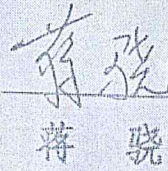 蒋骁
蒋 骁